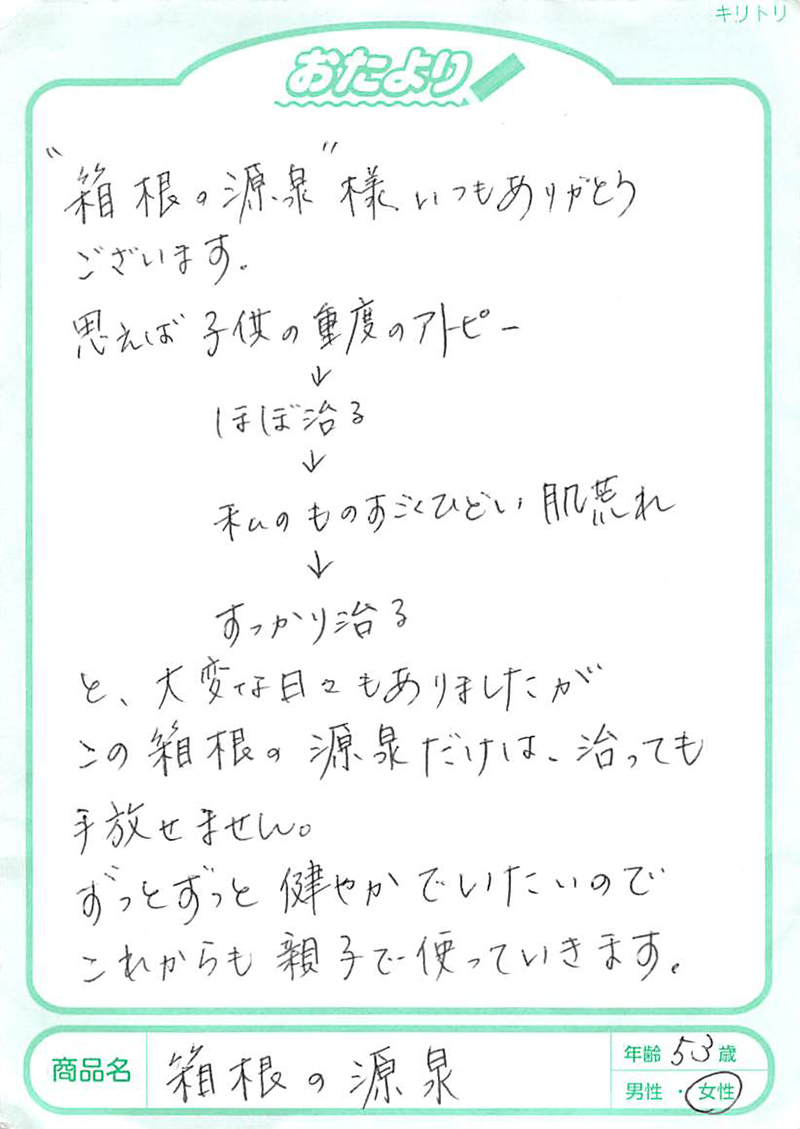 キリトリ
おたより
"箱根の源泉"様、いつもありがとう
ございます。
思えば子供の重度のアトピー
↓
ほぼ治る
↓
私のものすごくひどい肌荒れ
↓
すっかり治る
と、大変な日々もありましたが
この箱根の源泉だけは、治っても
手放せません。
ずっとずっと健やかでいたいので
これからも親子で使っていきます。
商品名 箱根の源泉
年齢 53歳
男性・女性